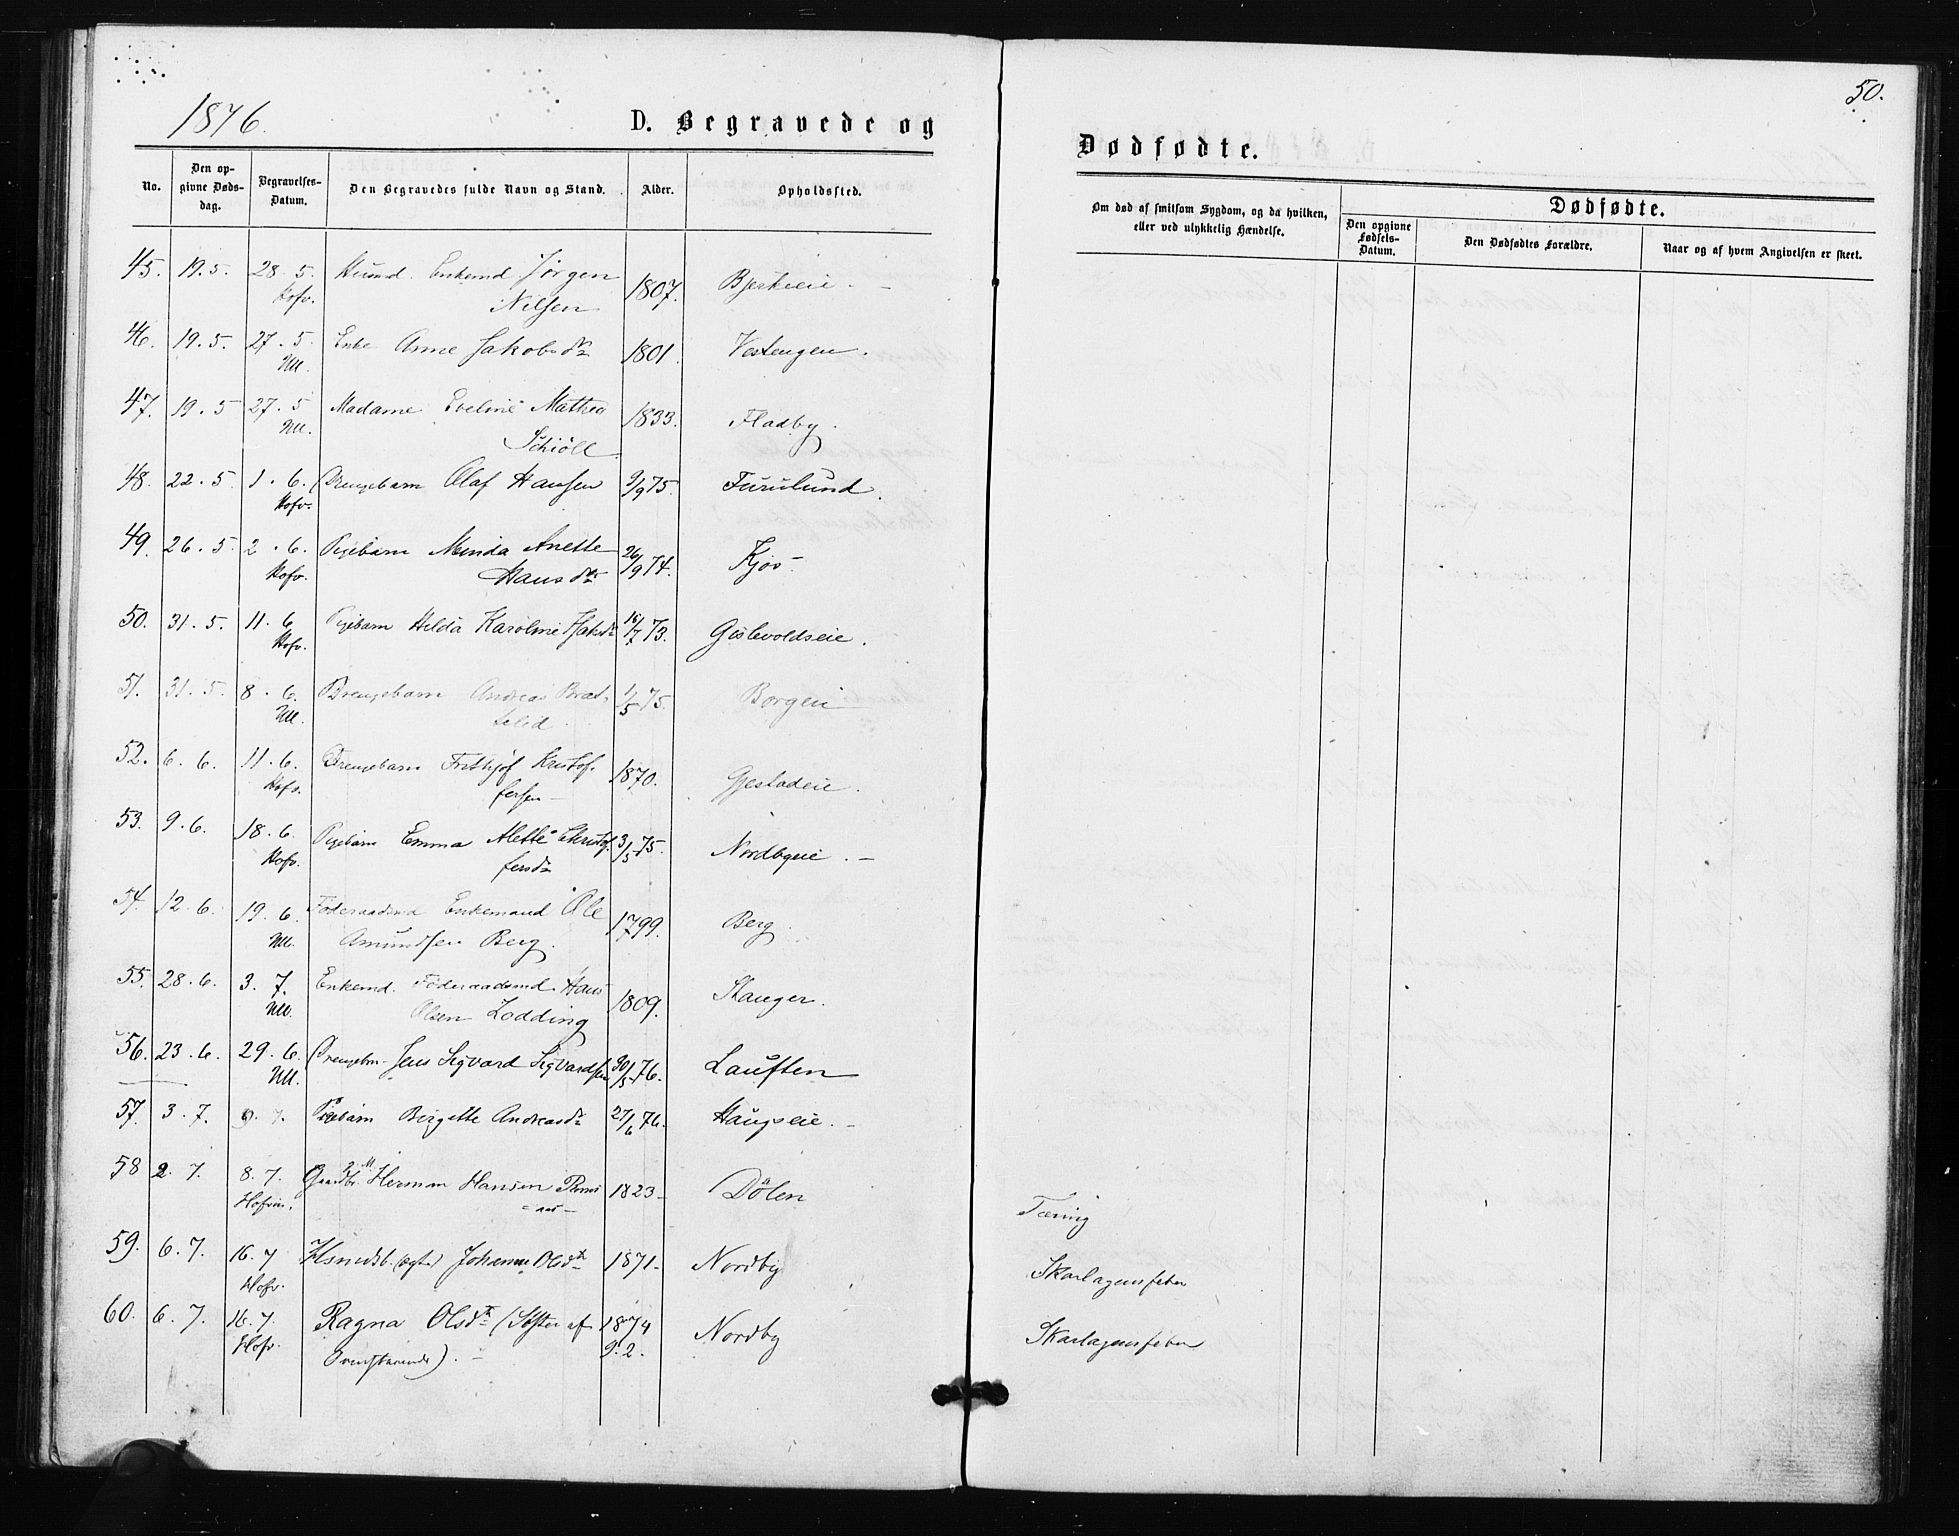 1876.
D. Begravede og
No.
Den op-
givne Døds-
dag.
Begravelses-
Datum.
Den Begravedes fulde Navn og Stand.
Alder.
Opholdssted.
45. 19.5. 28.5. Husmd. Enkemd Jørgen 1807. Bjerkeeie.
Hofv. Nilsen
46. 19.5 27.5. Enke Anne Jakobsdr 1801. Vestengen.
Ull.
47. 19.5 27.5 Madame Eveline Mathea 1833. Fladby.
Ull. Schiöll
48. 22.5. 1.6. Drengebarn Olaf Hansen 9/9 75. Furulund.
Hofv.
49. 26.5. 2.6. Pigebarn Minda Anette 26/9 74. Kjos
Hofv. Hansdr
50. 31.5. 11.6 Pigebarn Hilda Karoline 16/7 73. Gislevoldseie.
Hofv.
51. 31.5. 8.6. Drengebarn Andreas Brat- 1/5 75. Borgen
Ull. lelid.
52. 6.6. 11.6. Drengebarn Frithjof Kristof- 1870. Gjestadeie.
Hofv. fersen
53. 9.6. 18.6. Pigebarn Emma Alette Christof- 3/5 75. Nordbyeie.
Hofv. fersdr
54. 12.6. 19.6. Föderaadsmd Enkemand Ole 1799. Berg.
Ull. Amundsen Berg.
55. 28.6. 3.7. Enkemd. Föderaadsmd. Hans 1809. Stanger.
Ull. Olsen Lodding
56. 23.6. 29.6. Drengebn. Jens Sigvard Sigvardsen 30/5 76. Lauften
Ull.
57. 3.7. 9.7. Pigebarn Birgitte Andreasdr 27/6 76. Haugseie.
58 2.7. 8.7. Gaardbr. Herman Hansen 1823 Dölen
Hofvin.
59. 6.7. 16.7 Johanne Olsdtr 1871 Nordby
Hofv.
60. 6.7. 16.7. Ragna Olsdtr (Söster af 1874 Nordby
Hofv. Ovenstaaende). 9.2.
50.
Dødfødte.
Om død af smitsom Sygdom, og da hvilken,
eller ved ulykkelig Hændelse.
Dødfødte.
Den opgivne
Fødsels-
Datum.
Den Dødfødtes Forældre.
Naar og af hvem Angivelsen er skeet.
Tæring
Skarlagensfeber
Skarlagensfeber